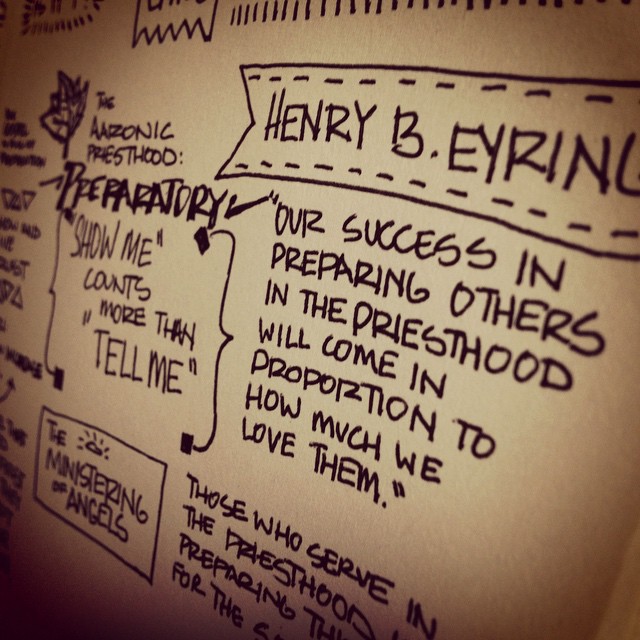 HENRY B. EYRING
THE
AARONIC
PRIESTHOOD:
PREPARATORY
"SHOW ME"
COUNTS
MORE THAN
"TELL ME"
"OUR SUCCESS IN
PREPARING OTHERS
IN THE PRIESTHOOD
WILL COME IN
PROPORTION TO
HOW MUCH WE
LOVE THEM."
THE
MINISTERING
OF ANGELS
THOSE WHO SERVE IN
THE PRIESTHOOD
PREPARING
FOR THE